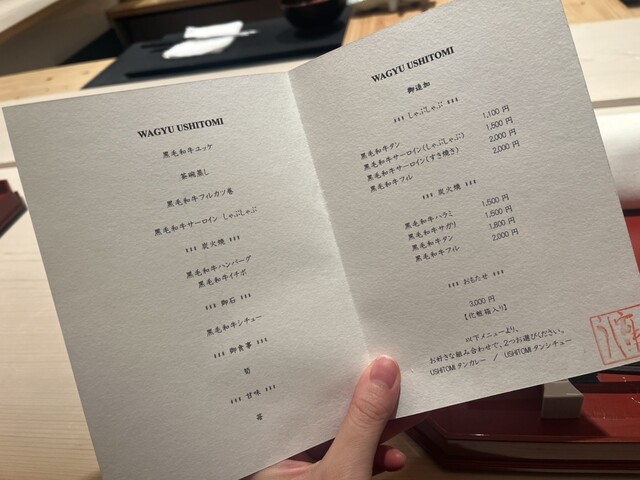 WAGYU USHITOMI
黒毛和牛ユッケ
茶碗蒸し
黒毛和牛フルカン巻
黒毛和牛サーロイン しゃぶしゃぶ
炭火焼
黒毛和牛ハンバーグ
黒毛和牛イチボ
御石
黒毛和牛シチュー
御食事
旬
甘味
苺
WAGYU USHITOMI
御追加
しゃぶしゃぶ
黒毛和牛タン 1,100 円
黒毛和牛サーロイン(しゃぶしゃぶ) 1,500 円
黒毛和牛サーロイン(すき焼き) 2,000 円
黒毛和牛フィル 2,000 円
炭火焼
黒毛和牛ハラミ 1,500 円
黒毛和牛サガリ 1,500 円
黒毛和牛タン 1,800 円
黒毛和牛フィル 2,000 円
おもたせ
3,000 円
【化粧箱入り】
以下メニューより、
お好きな組み合わせで、2つお選びください。
USHITOMIタンカレー / USHITOMIタンシチュー